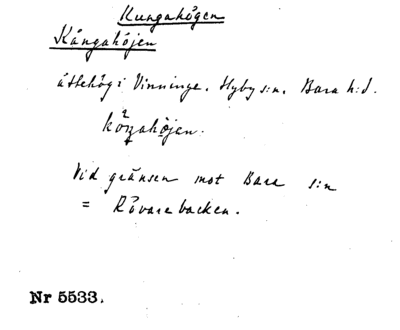 Kungahögen
Kångahöjen
ättehög i Vinninge. Hyby s:n. Bara h:d.
Vid gränsen mot Bara s:n
= Rövarebacken.
Nr 5533.